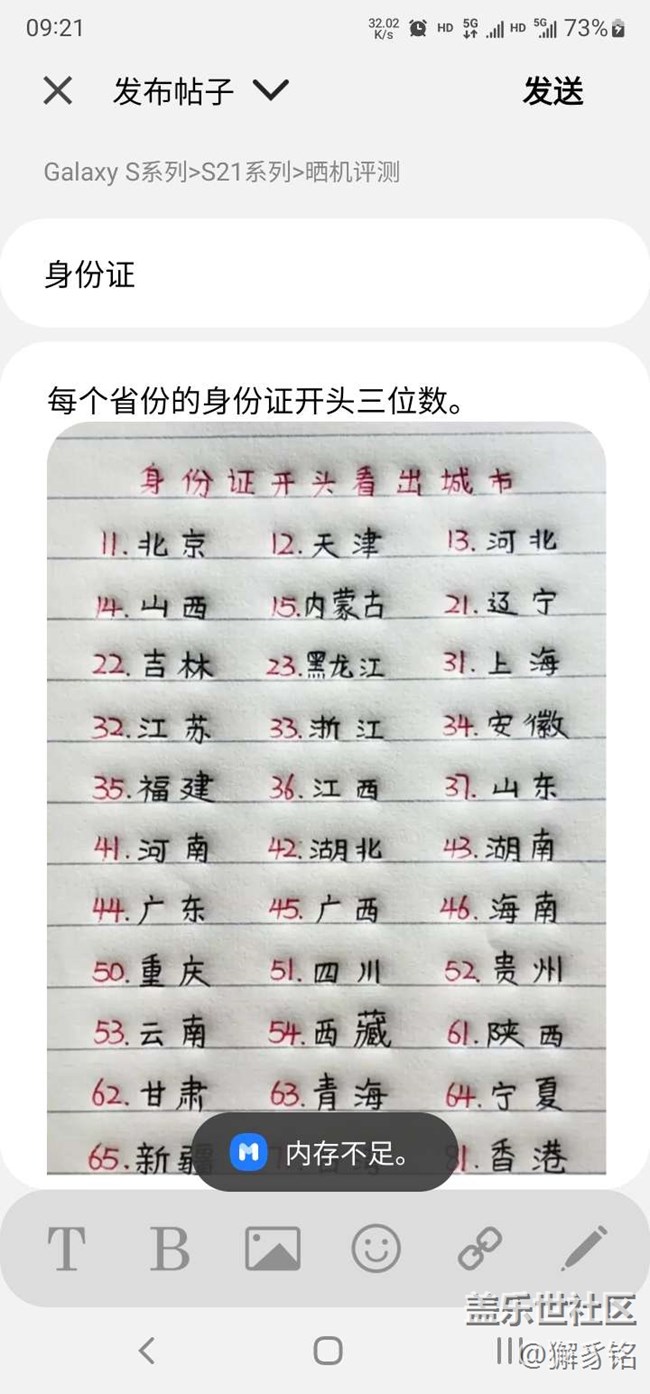 09:21 32.02 K/s HD 5G HD 5G 73%
发布帖子 发送
Galaxy S系列>S21系列>晒机评测
身份证
每个省份的身份证开头三位数。
身份证开头看出城市
11.北京 12.天津 13.河北
14.山西 15.内蒙古 21.辽宁
22.吉林 23.黑龙江 31.上海
32.江苏 33.浙江 34.安徽
35.福建 36.江西 37.山东
41.河南 42.湖北 43.湖南
44.广东 45.广西 46.海南
50.重庆 51.四川 52.贵州
53.云南 54.西藏 61.陕西
62.甘肃 63.青海 64.宁夏
65.新疆 81.香港
内存不足。
T B
盖乐世社区
@獬豸铭